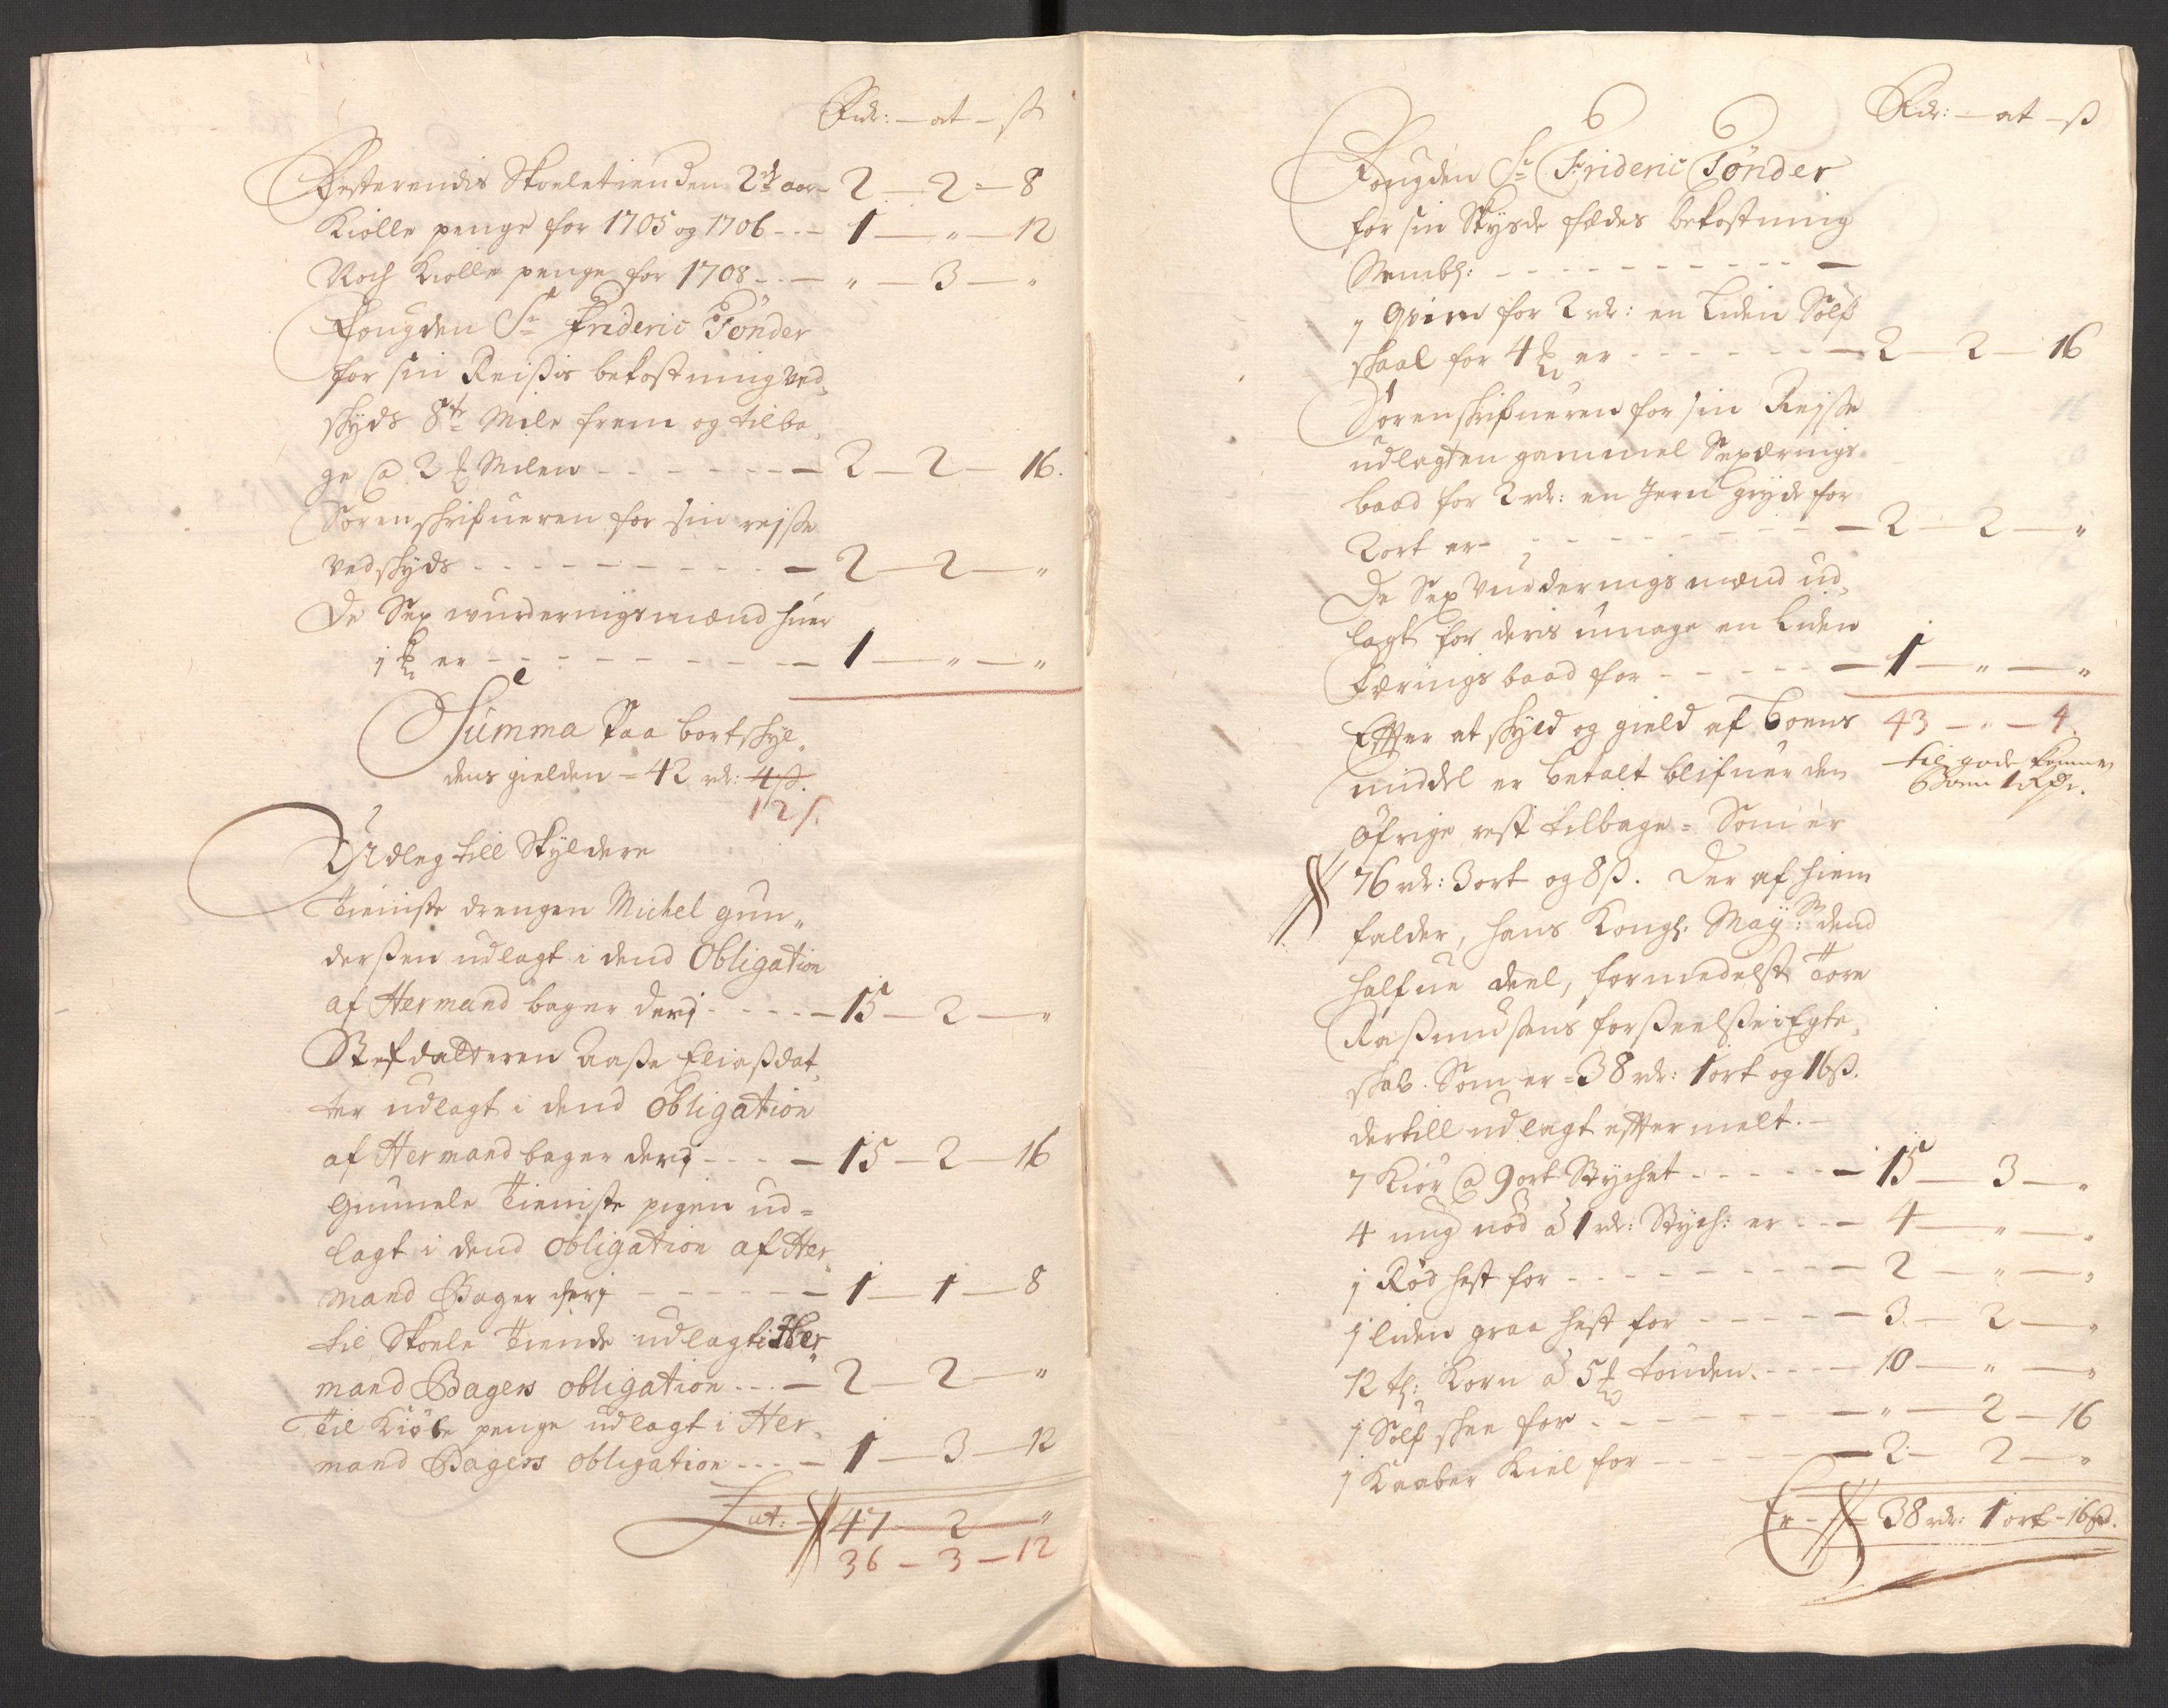 Rdr: — ort — ß
Resterendis Skoeletienden 2de aar — 2 — 2 — 8
Kiolle penge for 1705 og 1706 — 1 — " — 12
Noch Kiolle penge for 1708 — " — 3 — "
Fougden Sr Frideric Tønder
for sin Reißis bekostning ved
skyds 8te Mile frem og tilba„
ge @ 2 ₰ Milen — 2 — 2 — 16.
Sorenskrifueren for sin rejsse
vedskyds — 2 — 2 — "
De Sex wurderings mænd huer
1 ₰ er — 1 — " — "
Summa Paa bortskyl„
dens gielden = 42 rdr: 4ß.
12ß.
Udleg till Skyldere
Tieniste drengen Michel gun„
derßen udlagt i dend Obligation
af Hermand bager deri — 15 — 2 — "
Stefdatteren Aaße Eliaßdat„
ter udlagt i dend obligation
af Hermand bager deri — 15 — 2 — 16
Gunnele Tieniste pigen ud=
lagt i dend obligation af Her„
mand Bager deri — 1 — 1 — 8
til Skoele Tiende udlagt i Her„
mand Bagers obligation — 2 — 2 — "
Til Kiøle penge udlagt i Her„
mand Bagers obligation — 1 — 3 — 12
Lat: 47 — 2 — "
36 — 3 — 12
Rdr: — ort — ß
Fougden Sr Frideric Tønder
for sin Skysds fædes bekostning
Sembl: —
1 Qvie for 2 rdr: en Liden Sølf
skaal for 4 ₰ er — 2 — 2 — 16
Sorenskrifueren for sin Rejsse
udlagt en gammel Sexærings
baad for 2 rdr: en Jern gryde for
2 ort er — 2 — 2 — "
De Sex Vurderings mænd ud„
lagt for deris umage en Liden
færings baad for — 1 — " — "
Effter at skyld og gield af boens 43 — " — 4
middel er betalt blifuer den til gode kommer
Boen 1 Rdr.
øfrige rest tilbage = Som er
76 rdr: 3 ort og 8ß. Der af hiem
falder, hans Kongl: May:ts dend
halfue deel, formedelst Tore
Raßmudsens forßeelße i Egte„
skab. Som er = 38 rdr: 1 ort og 16ß.
dertill udlagt effter melt. —
7 Kiør @ 9 ort Stychet — 15 — 3 — "
4 ung nød á 1 rdr: Stych: er — 4 — " — "
1 Rød hest for — 2 — " — "
1 liden graa hest for — 3 — 2 — "
12 td: Korn á 5 ₰ tønden — 10 — " — "
1 Sølf skee for — " — 2 — 16
1 Kaaber Kiel for — 2 — 2 — "
Er — 38 rdr: 1 ort — 16ß.